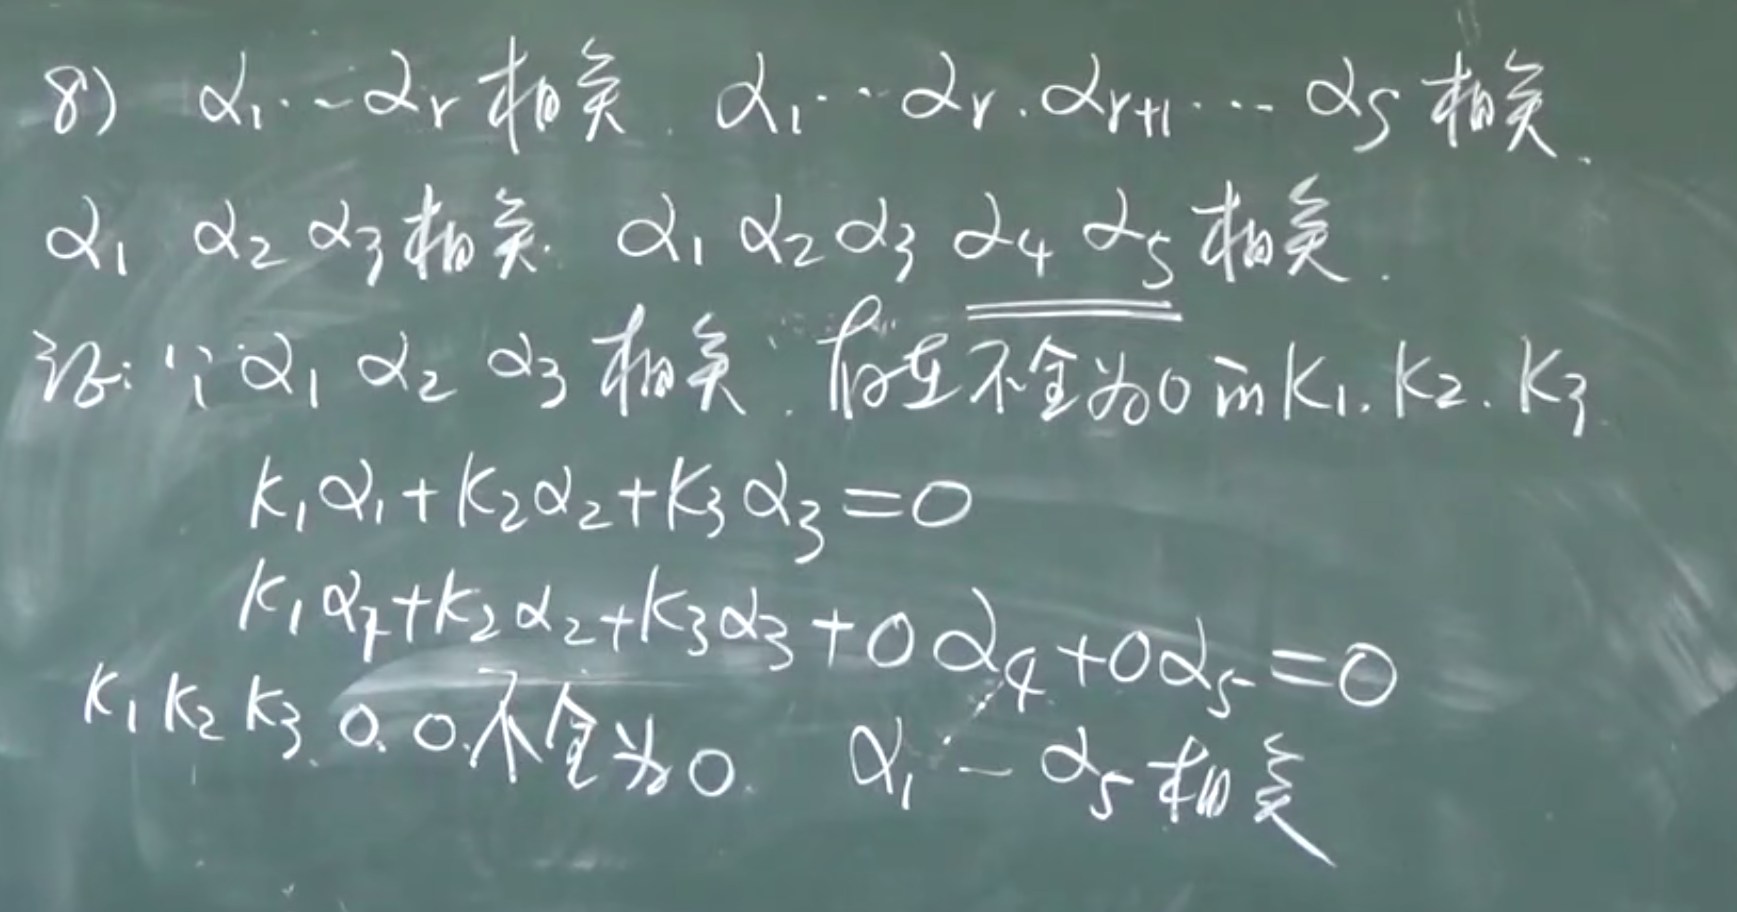 8) α₁…αᵣ相关. α₁…αᵣ.αᵣ₊₁…αs相关.
α₁ α₂ α₃相关. α₁ α₂ α₃ α₄ α₅相关.
证: ∵α₁ α₂ α₃相关. 存在不全为0的K₁. K₂. K₃
K₁α₁+K₂α₂+K₃α₃=0
K₁α₁+K₂α₂+K₃α₃+0α₄+0α₅=0
K₁ K₂ K₃ 0. 0. 不全为0. α₁…α₅相关